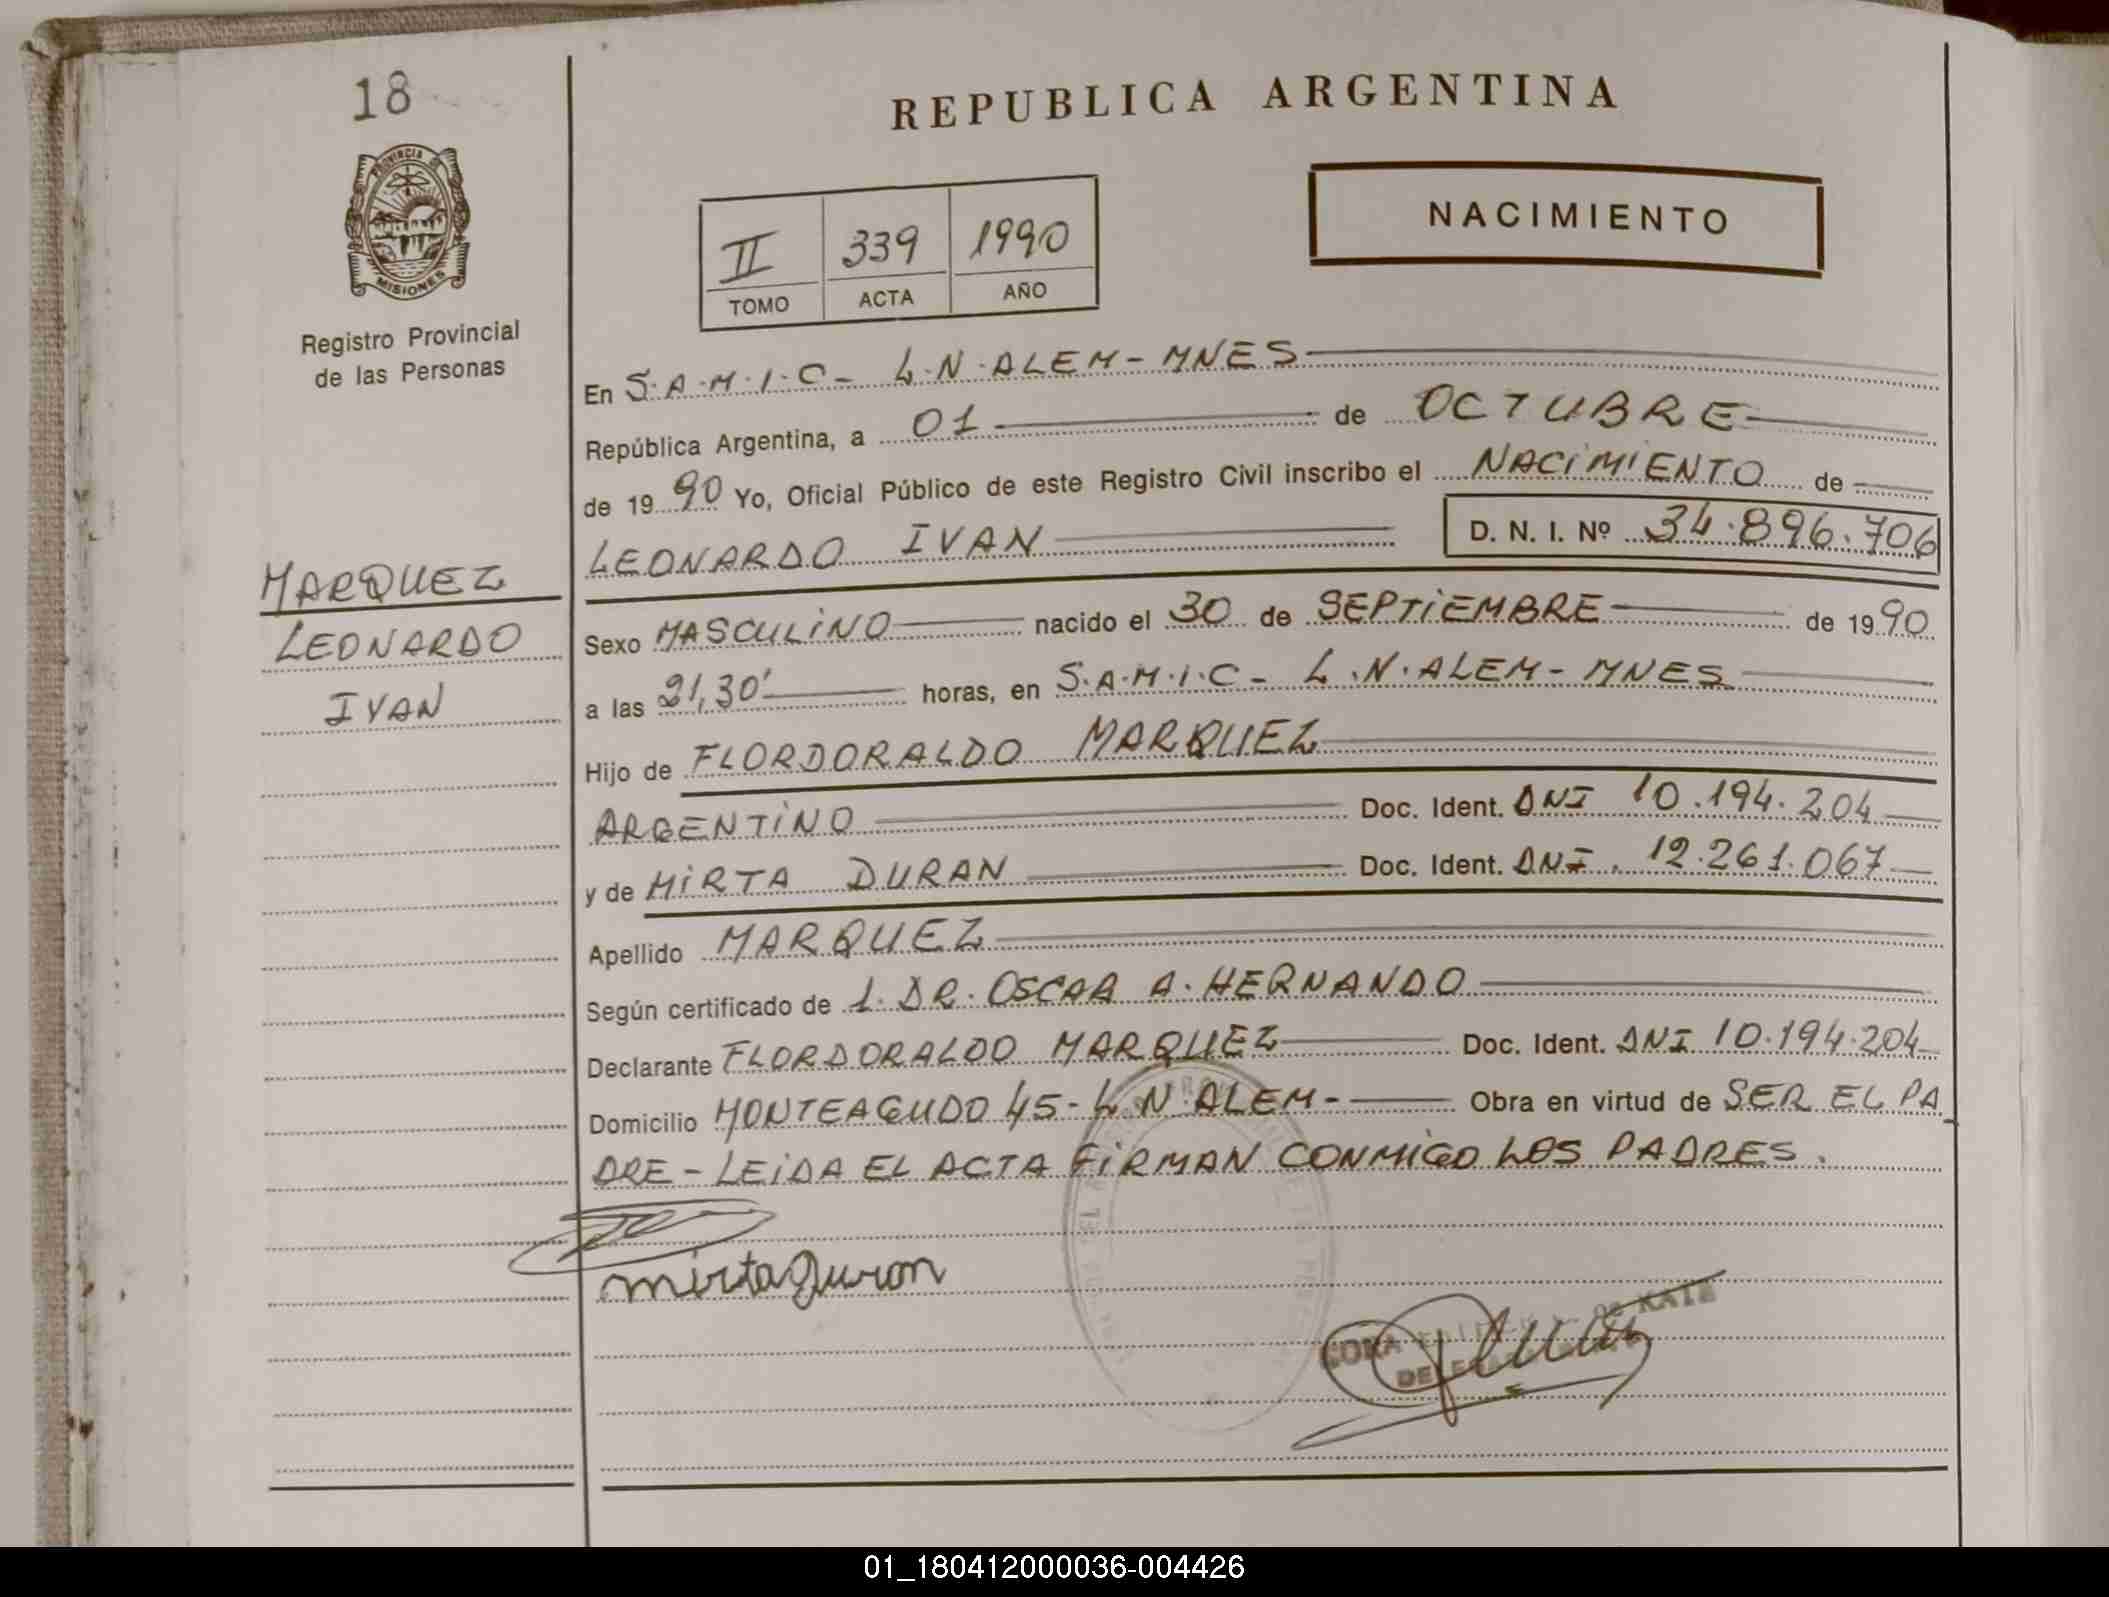 18
PROVINCIA DE
MISIONES
Registro Provincial
de las Personas
MARQUEZ
LEONARDO
IVAN
REPUBLICA ARGENTINA
NACIMIENTO
II 339 1990
TOMO ACTA AÑO
En S.A.M.I.C- L.N.ALEM-MNES
República Argentina, a 01 de OCTUBRE
de 1990 Yo, Oficial Público de este Registro Civil inscribo el NACIMIENTO de
LEONARDO IVAN D. N. I. Nº 34.896.706
Sexo MASCULINO nacido el 30 de SEPTIEMBRE de 1990
a las 21,30' horas, en S.A.M.I.C- L.N.ALEM-MNES
Hijo de FLORDORALDO MARQUEZ
ARGENTINO Doc. Ident. DNI 10.194.204
y de MIRTA DURAN Doc. Ident. DNI. 12.261.067
Apellido MARQUEZ
Según certificado de 1. DR. OSCAR A. HERNANDO
Declarante FLORDORALDO MARQUEZ Doc. Ident. DNI 10.194.204
Domicilio MONTEAGUDO 45-L N.ALEM- Obra en virtud de SER EL PA
DRE-LEIDA EL ACTA FIRMAN CONMIGO LOS PADRES.
mirta Duran
01_180412000036-004426